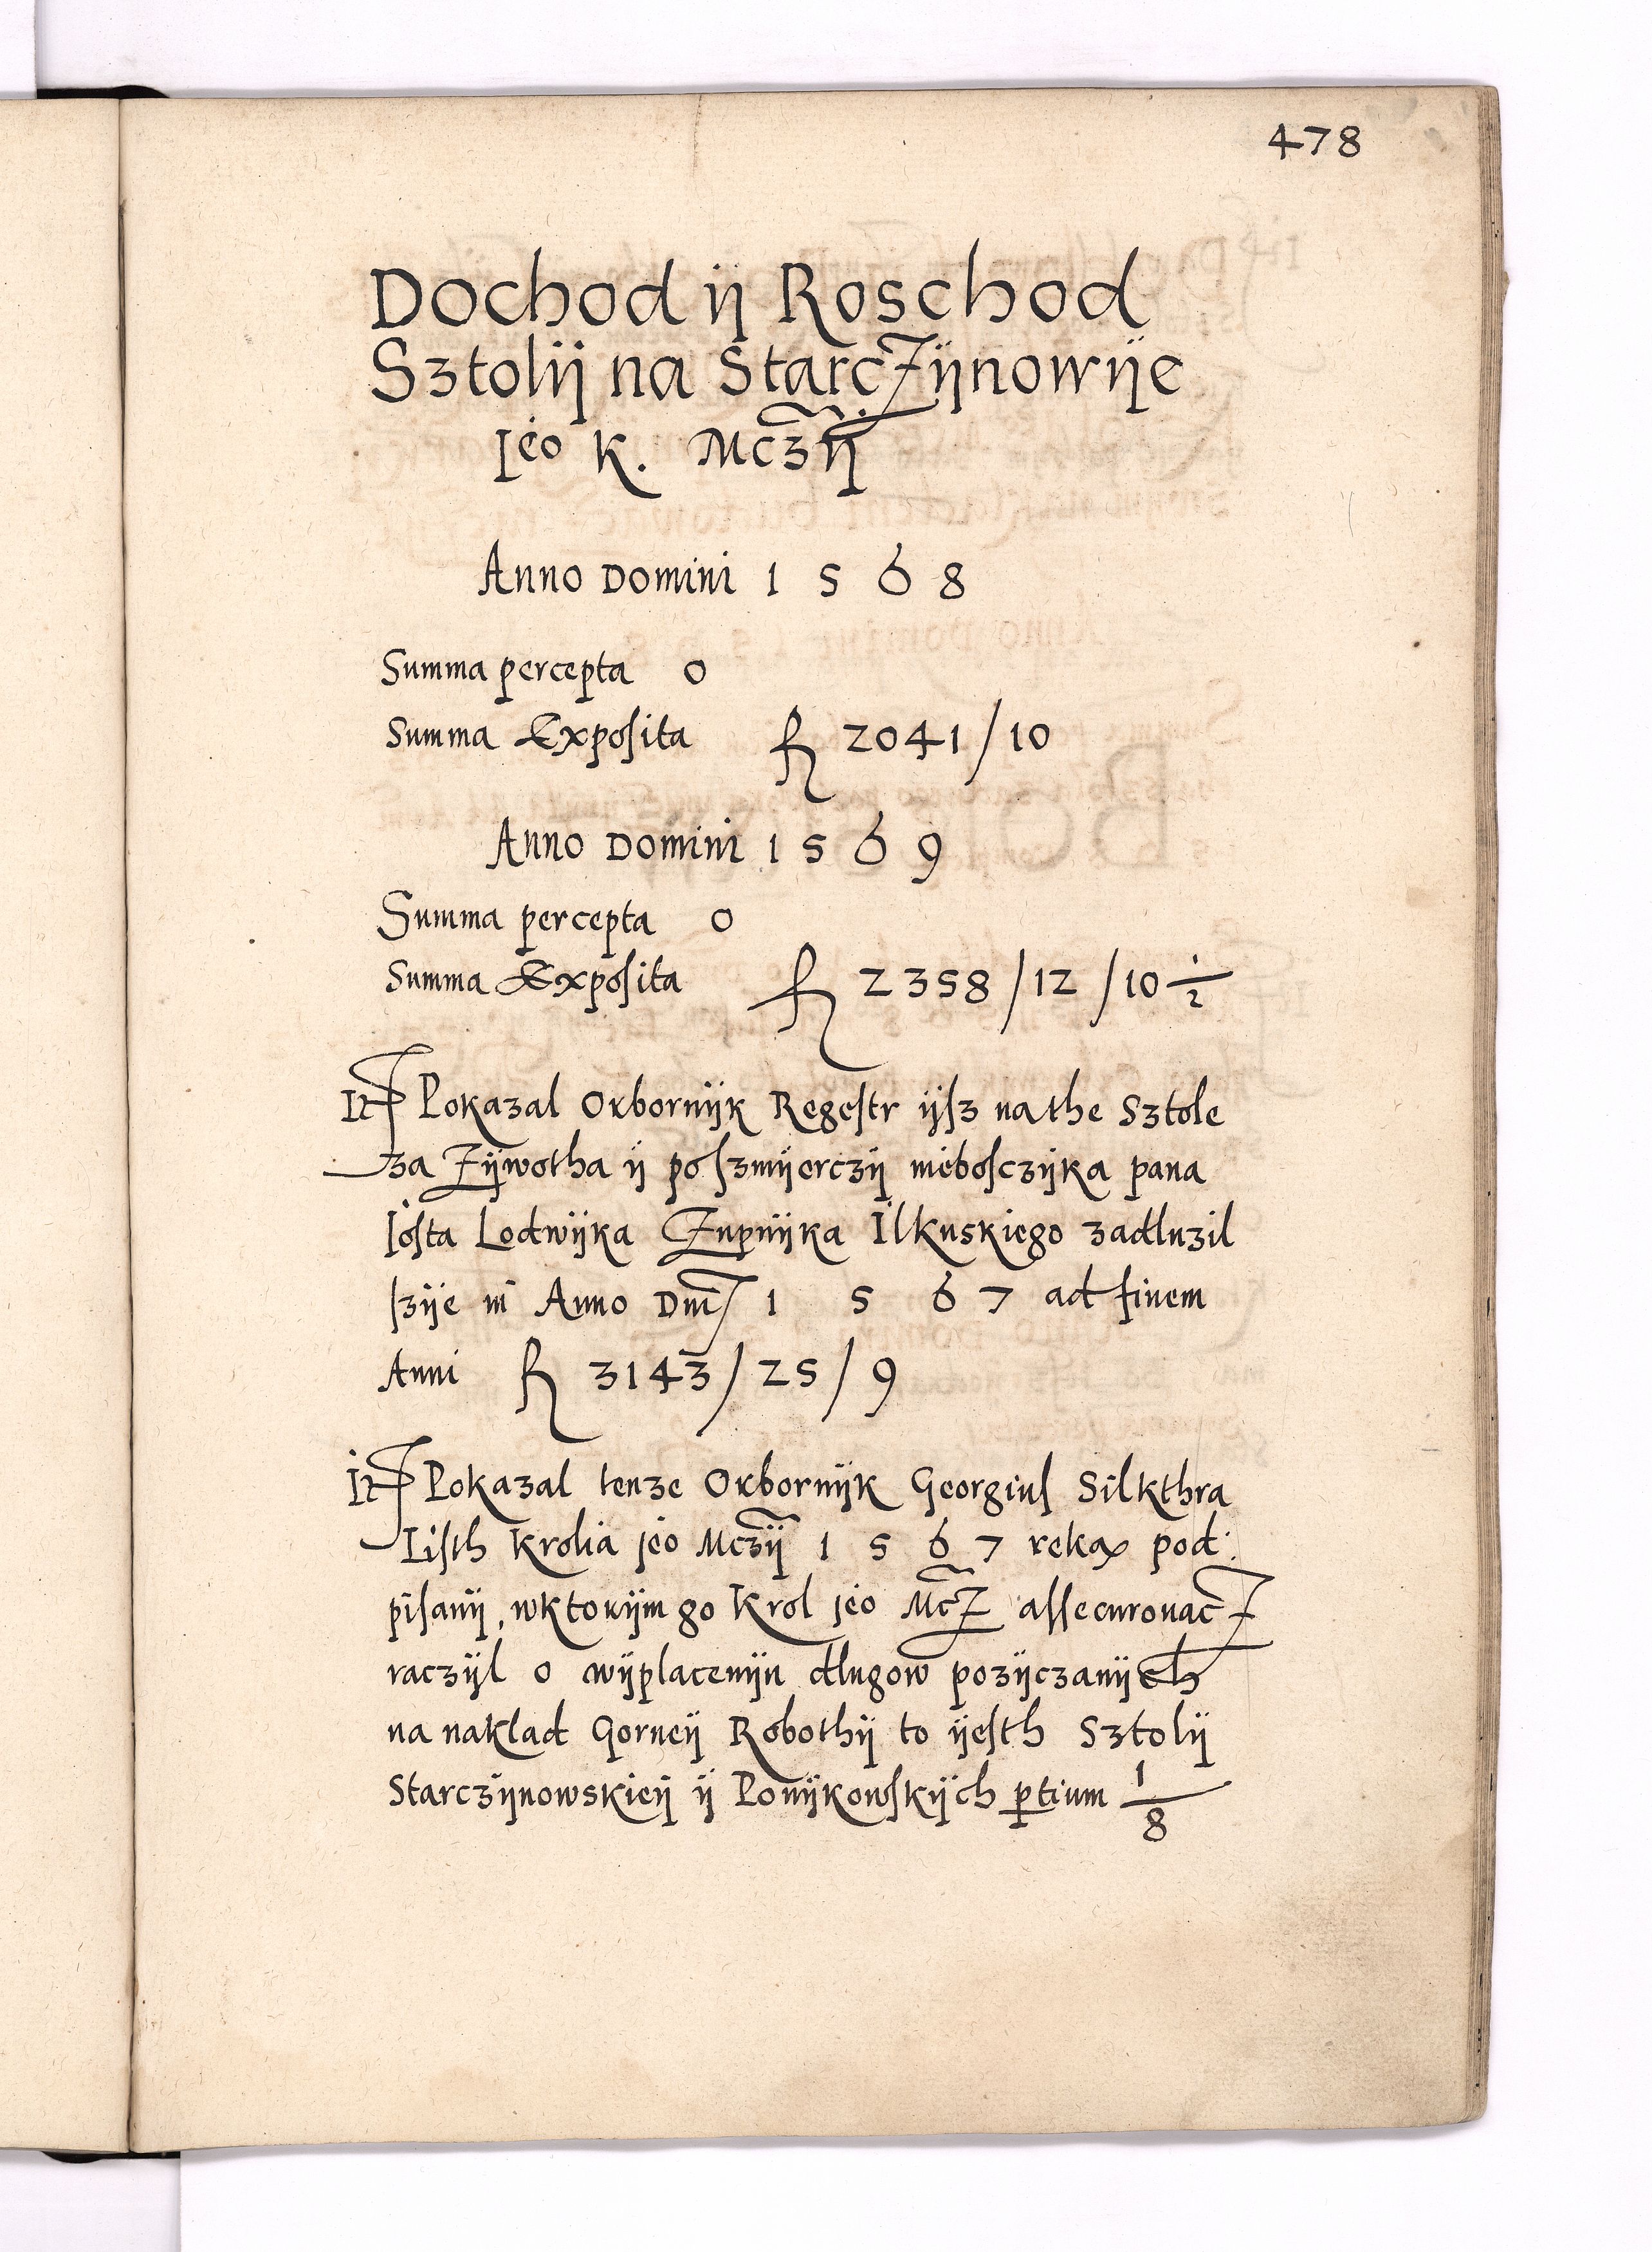 478
Dochod ÿ Roschod
Sztolÿ na StarcZÿnowÿe
Ieo K. Mczÿ
Anno Domini 1568
Summa percepta 0
Summa Exposita fl 2041/10
Anno Domini 1569
Summa percepta 0
Summa Exposita fl 2358/12/10 1/2
It Pokazal Oxbornÿk Regestr ÿsz na the Sztole
za Zÿwotha ÿ poszmÿerczÿ niebosczÿka pana
Iosta Lodwÿka Zupnÿka Ilkuskiego zadluzil
szÿe in Anno Dni 1567 ad finem
Anni fl 3143/25/9
It Pokazal tenze Oxbornÿk Georgius Silkthra
Listh Krolia jeo Mczÿ 1567 reka pod:
pisanÿ, wktorÿm go Krol jeo McZ assecurouacZ
raczÿl o wÿplacenÿu dlugow pozÿczanÿch
na naklad Gorneÿ Robothÿ to ÿesth Sztolÿ
Starczÿnowskieÿ ÿ Ponÿkowskÿch ptium 1/8